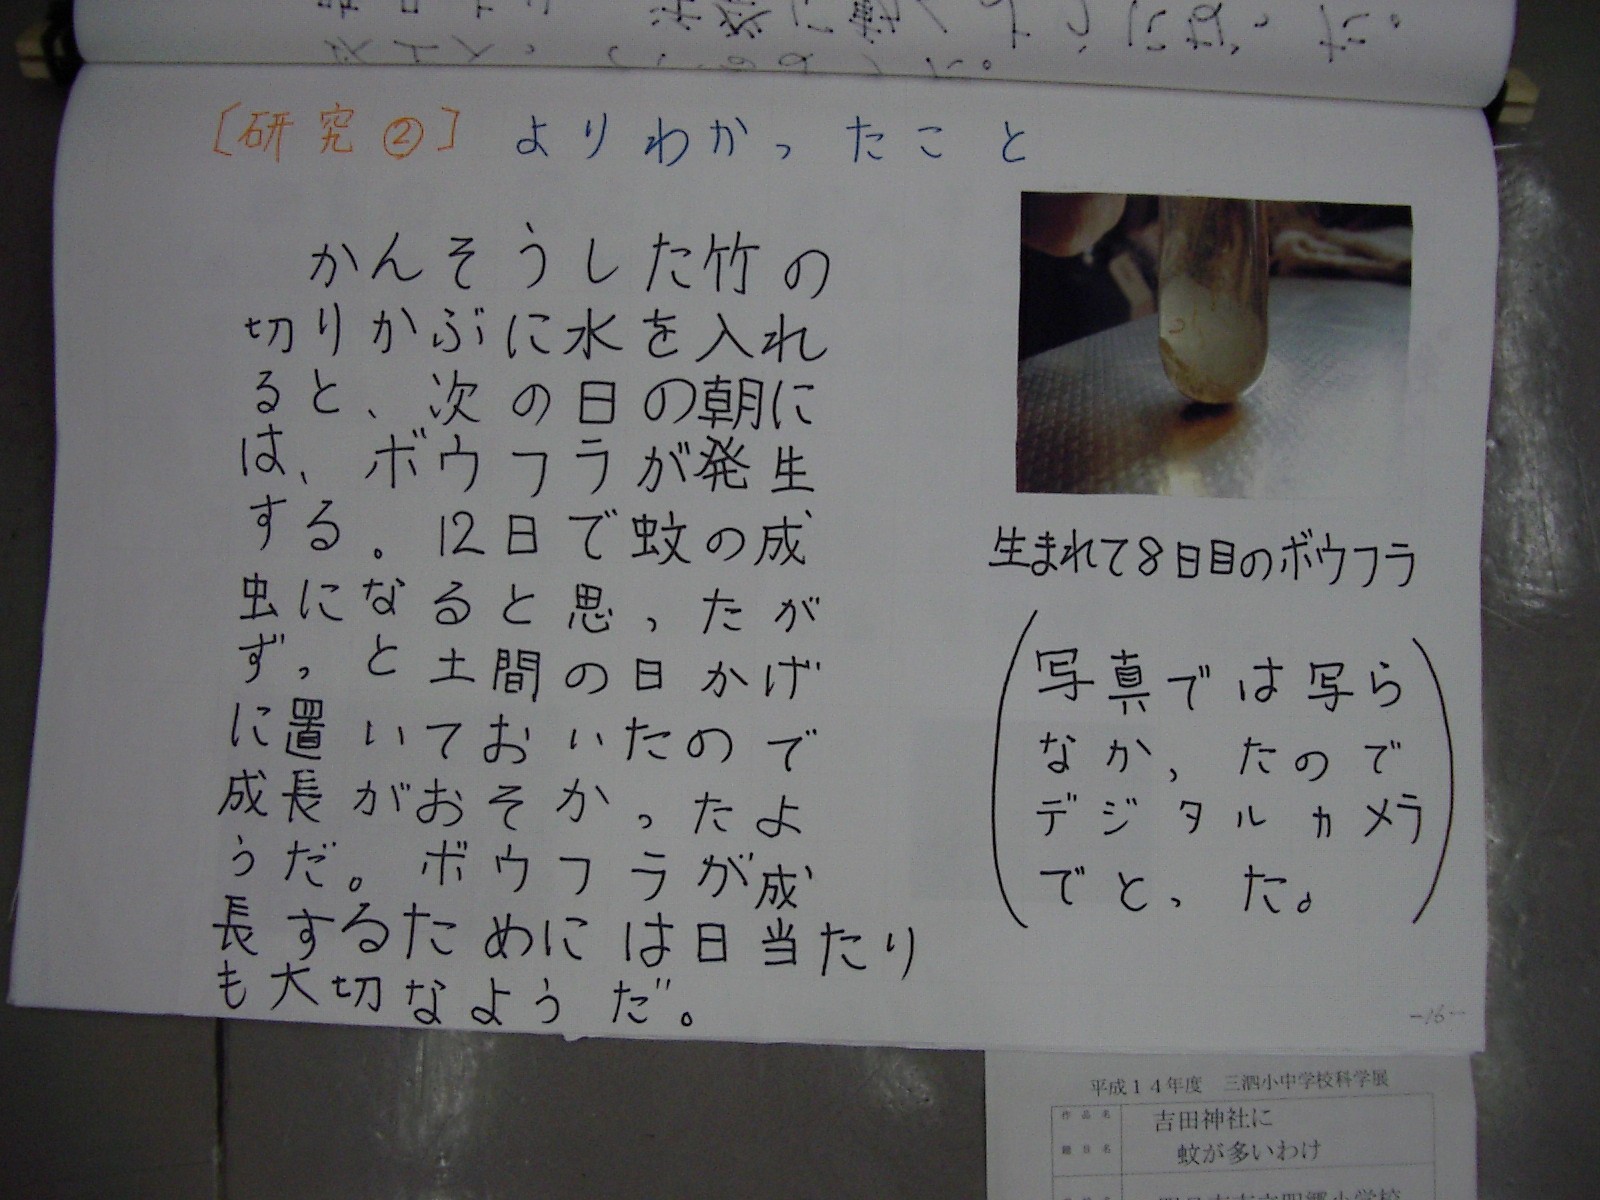 [研究②]よりわかったこと
かんそうした竹の
切りかぶに水を入れ
ると、次の日の朝に
は、ボウフラが発生
する。12日で蚊の成
虫になると思ったが
ずっと土間の日かげ
に置いておいたので
成長がおそかったよ
うだ。ボウフラが成
長するためには日当たり
も大切なようだ。
生まれて8日目のボウフラ
写真では写ら
なかったので
デジタルカメラ
でとった。
-16-
平成14年度 三泗小中学校科学展
作品名 吉田神社に
題目名 蚊が多いわけ